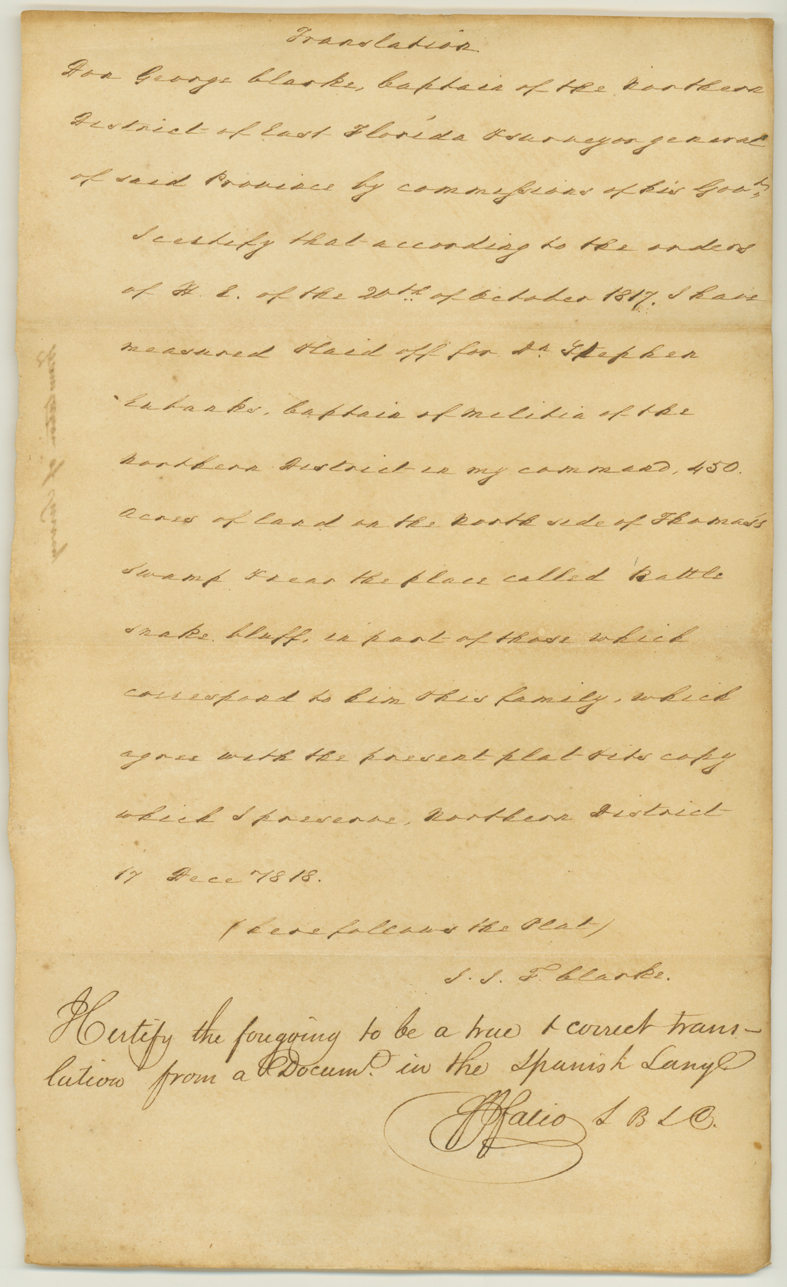 Translation
Don George Clarke, Captain of the Northern
District of East Florida & surveyor general
of said Province by commissions of his Govt.
I certify that according to the orders
of H. E. of the 20th of October 1817. I have
measured & laid off for Dn. Stephen
Eubanks, Captain of Militia of the
Northern District in my command, 450.
Acres of land on the North side of Thomas's
Swamp & near the place called Rattle
snake bluff, in part of those which
correspond to him & his family, which
agree with the present plat & its copy
which I preserve, Northern District
17 Dece 1818.
(here follows the Plat)
F. Clarke.
I Certify the foregoing to be a true & correct trans-
lation from a Documt. in the Spanish Lange
Fatio S B L C.